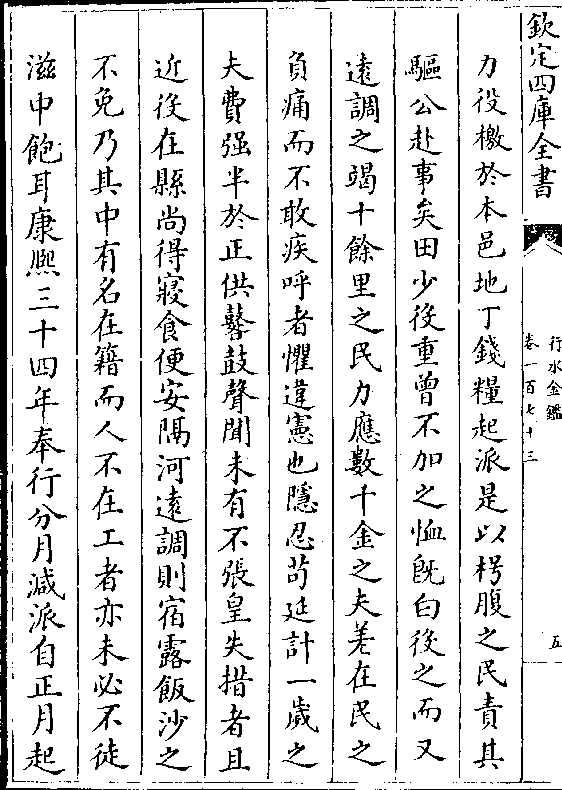 欽定四庫全書
行水金鑑
卷一百七十三
五
力役檄於本邑地丁錢糧起派是以枵腹之民責其
驅公赴事矣田少役重曾不加之恤旣白役之而又
遠調之竭十餘里之民力應數千金之夫差在民之
負痛而不敢疾呼者懼違憲也隱忍茍延計一歲之
夫費强半於正供鼛鼓聲聞未有不張皇失措者且
近役在縣尚得寢食便安隔河遠調則宿露飯沙之
不免乃其中有名在籍而人不在工者亦未必不徒
滋中飽耳康熙三十四年奉行分月減派自正月起